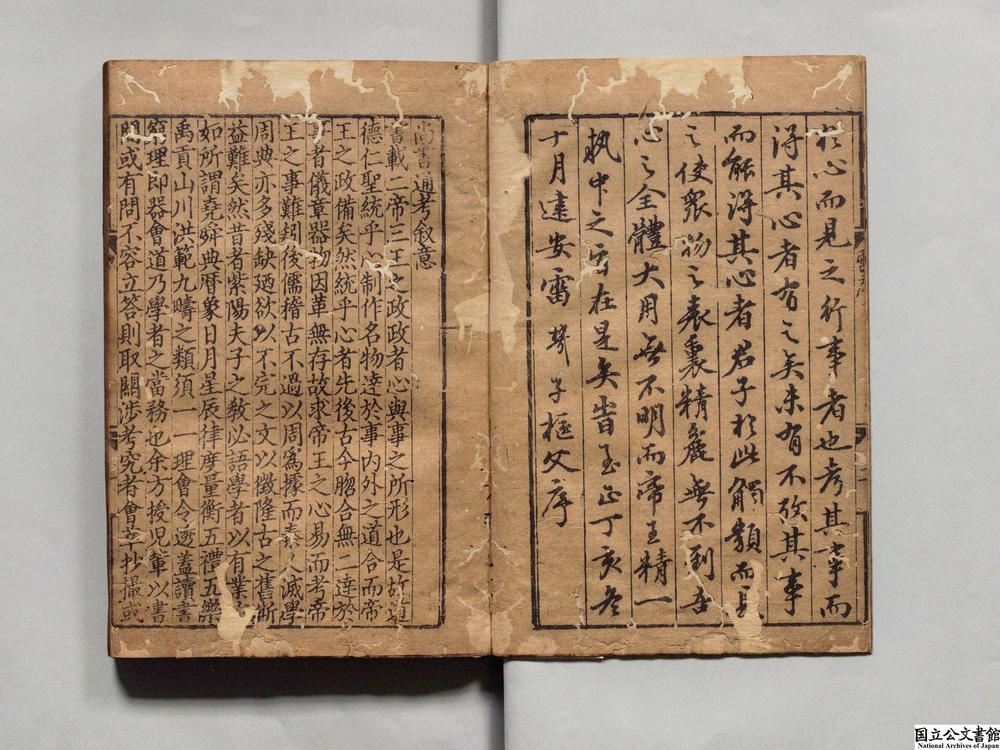 於心而見之行事者也考其事而
得其心者有之矣未有不攷其事
而能得其心者君子於此觸類而長
之使衆物之表裏精麁無不到吾
心之全體大用無不明而帝王精一
執中之旨在是矣旹至正丁亥冬
十月建安雷機子樞父序
尚書通考敘意
書載二帝三王之政政者心與事之所形也是故道
德仁聖統乎心制作名物達於事内外之道合而帝
王之政備矣然統乎心者先後古今脗合無一達於
事者儀章器物因革無存故求帝王之心易而考帝
王之事難矧後儒稽古不過以周爲據而秦人滅學
周典亦多殘缺廼欲以不完之文以徵隆古之舊斯
益難矣然昔者紫陽夫子之敎必語學者以有業次
如所謂堯舜典暦象日月星辰律度量衡五禮五樂
禹貢山川洪範九疇之類須一一理會令透蓋讀書
窮理即器會道乃學者之當務也余方授兒輩以書
間或有問不容立答則取關涉考究者會萃抄撮或
国立公文書館
National Archives of Japan